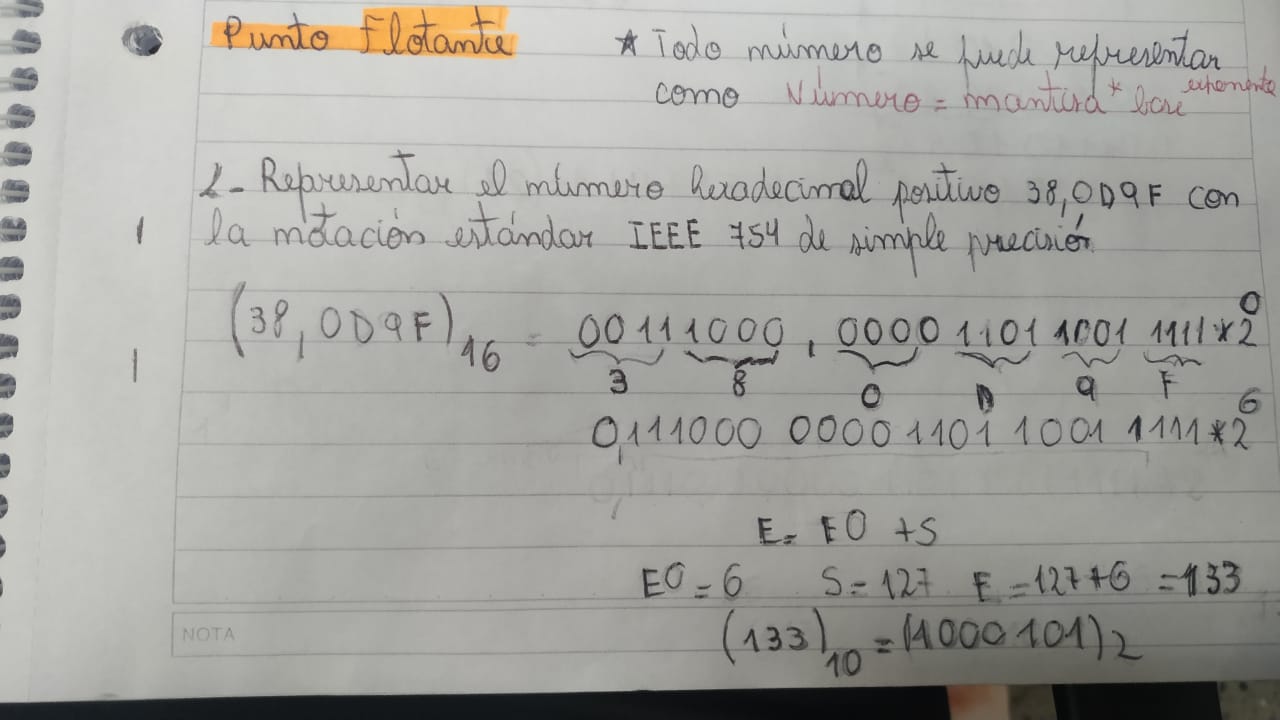 Punto Flotante
* Todo número se puede representar
como Número = mantisa * base exponente
1- Representar el número hexadecimal positivo 38,0D9F con
la notación estándar IEEE 754 de simple precisión.
(38,0D9F)16 = 00111000, 0000 1101 1001 1111 * 2^0
3 8 0 D 9 F
0,111000 0000 1101 1001 1111 * 2^6
E = E0 + S
E0 = 6 S = 127 E = 127+6 = 133
NOTA
(133)10 = (1000 101)2